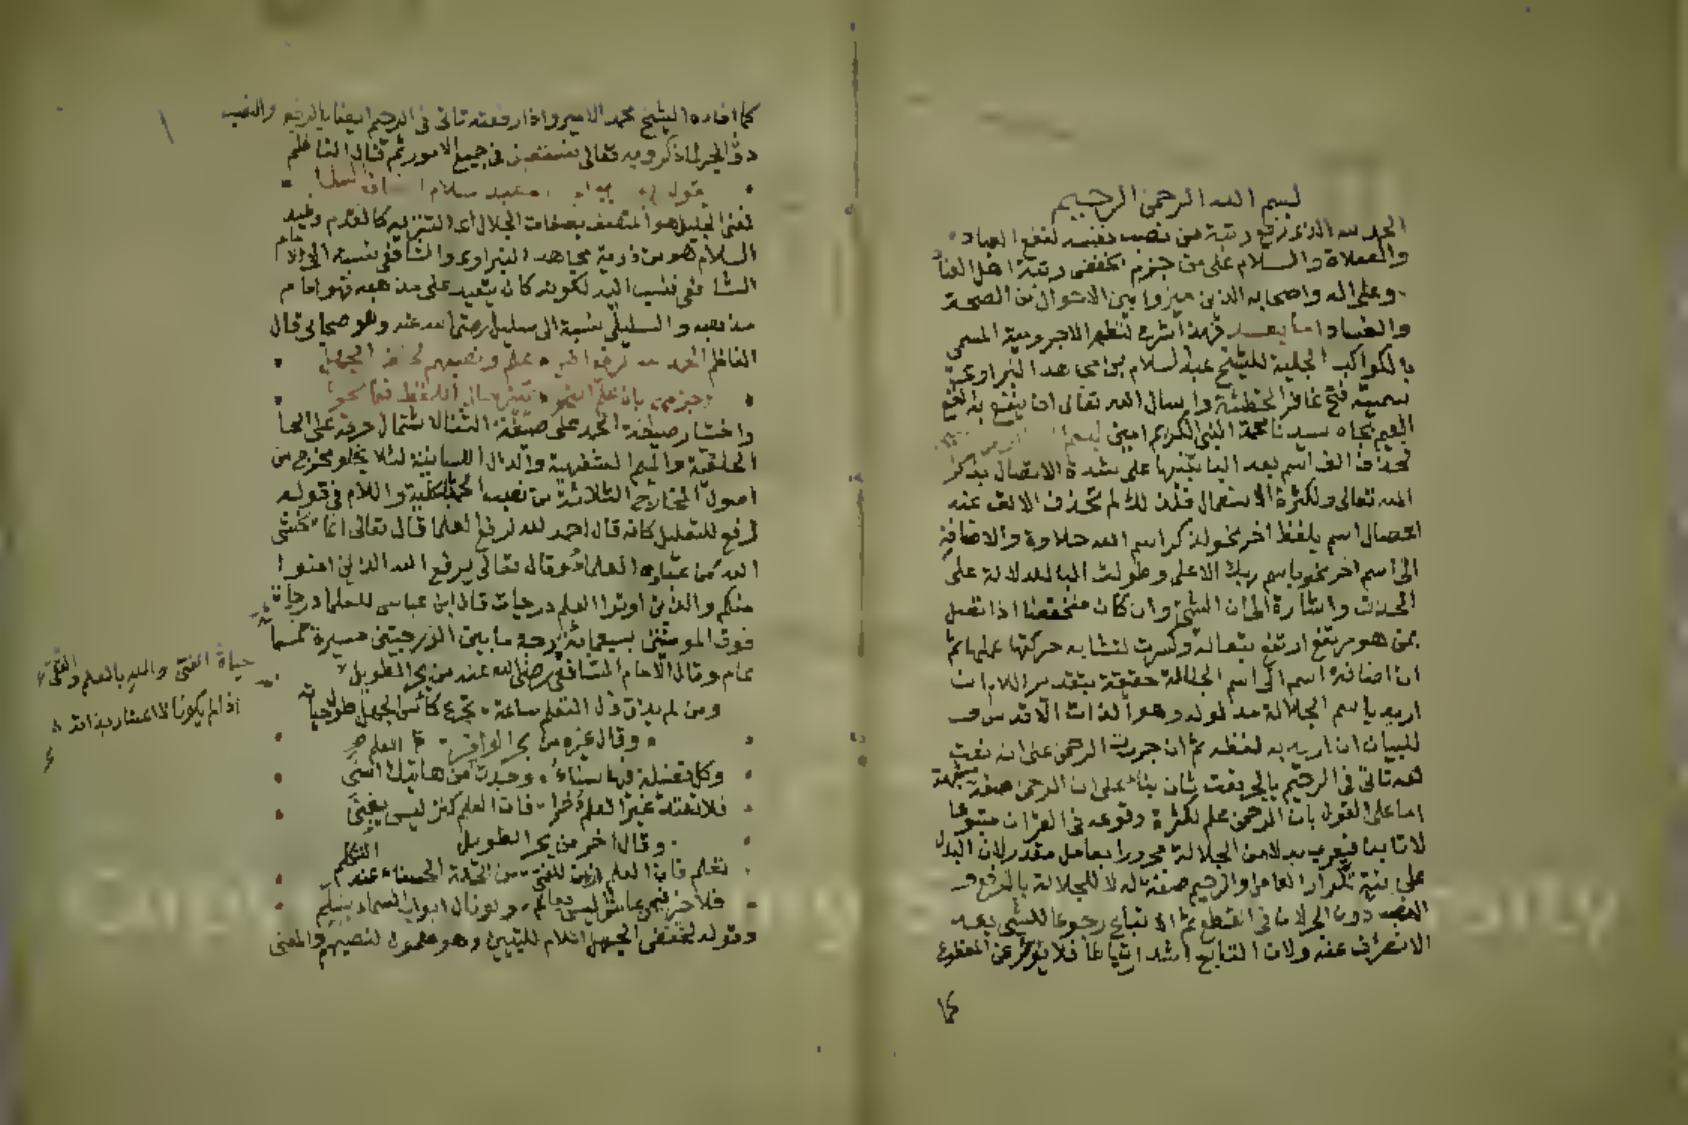 بسم الله الرحمن الرحيم
الحمد لله الذي رفع رتبة من نصب نفسه لنفع العباد
والصلاة والسلام على من جزم بخفض رتبة اهل العناد
وعلى اله واصحابه الذين ميزوا بين الاحوال من الصحة
والفساد اما بعد فهذا شرح لنظم الاجرومية المسمى
بالكواكب الجلية للشيخ عبد السلام بن مجاهد النبراوي
سميته فتح غافر الخطية واسال الله تعالى ان ينفع به نفع
العميم بجاه سيدنا محمد النبي الكريم امين بسم
تحذف الف اسم بعد الباء تنبيها على شدة الاتصال بذكر
الله تعالى ولكثرة الاستعمال فلذلك لم تحذف الالف عند
اتصال اسم بلفظ اخر نحو لذكر اسم الله حلاوة والاضافة
الى اسم اخر نحو باسم ربك الاعلى وطولت الباء للدلالة على
الحذف واشارة الى ان الشيء وان كان منخفضا اذا اتصل
بمن هو مرتفع ارتفع بتعاله وكسرت لتشابه حركتها عملها ثم
ان اضافة اسم الى اسم الجلالة حقيقة بتقدير اللام ان
اريد باسم الجلالة مدلوله وهو الذات الاقدس و
للبيان ان اريد به لفظه ثم ان جررت الرحمن على انه نعت
لله تاتي في الرحيم بالجر نعت ثان بناء على ان الرحمن صفة مشبهة
اما على القول بان الرحمن علم لكثرة وقوعه في القران متبوعا
لا تابعا فيعرب بدلا من الجلالة مجرورا بعامل مقدر لان البدل
على نية تكرار العامل والرحيم صفة له لا للجلالة بالرفع و
النصب دون الجر لان في القطع ثم الاتباع رجوعا للشيء بعد
الانصراف عنه ولان التابع اشد ارتباطا فلا يؤخر عن المقطوع
كما
كما افاده الشيخ محمد الامير واذا رفعته تاتي في الرحيم ايضا بالرفع والنصب
دون الجر لما ذكر وبه تعالى نستعين في جميع الامور ثم قال الناظم
يقول عبد سلام
الجليل هو المتصف بصفات الجلال اي التنزيه كالقدم وعبد
السلام هو من ذرية مجاهد النبراوي والشافعي نسبة الى الامام
الشافعي فنسب اليه لكونه كان يتعبد على مذهبه فهو امام
مذهبه والسليلي نسبة الى سليل رضي الله عنه وهو صحابي قال
الناظم الحمد لله لرفع علم ونصبهم لخفض الجهل
وجزمهم بان علم النحو
واختار صيغة الحمد على صيغة الثناء لاشتمال حرفه على الحاء
الحلقية والميم الشفهية والدال اللسانية لئلا يخلو مخرج من
اصول المخارج الثلاثة من نصيب واللام في قوله
لرفع للتعليل كانه قال احمد الله لرفع العلماء قال تعالى انما يخشى
الله من عباده العلماء وقال تعالى يرفع الله الذين امنوا
منكم والذين اوتوا العلم درجات قال ابن عباس للعلماء درجات
فوق المومنين بسبعمائة درجة ما بين الدرجتين مسيرة خمسمائة
عام وقال الامام الشافعي رضي الله عنه من بحر الطويل
ومن لم يذق ذل التعلم ساعة تجرع كأس الجهل طول حياته
وقال غيره من بحر الوافر
وكل فضيلة فيها سناء وجدت العلم من هاتيك اسنى
فلا تعتد غير العلم ذخرا فان العلم كنز ليس يفنى
وقال اخر من بحر الطويل
تعلم فان العلم ازين للفتى من الحلة الحسناء عند التكلم
فلا خير فيمن عاش ليس بعالم ولو نال ابواب السماء بسلم
وقوله لخفض الجهل اللام للتبيين وهو معمول لنصبهم والمعنى
حياة الفتى والله بالعلم والتقى
اذا لم يكونا لا اعتبار بذاته